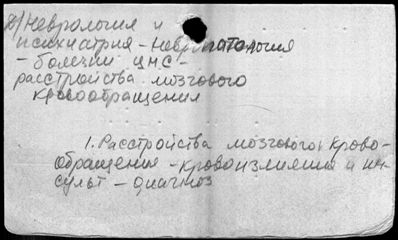 д) Неврология и
психиатрия - Невропатология
- болезни ЦНС -
расстройства мозгового
кровообращения
1. Расстройства мозгового крово-
обращения - кровоизлияния и ин-
сульт - диагноз